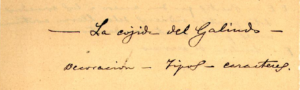 — La cojida del Galindo —
Decoración — Tipos — caracteres.